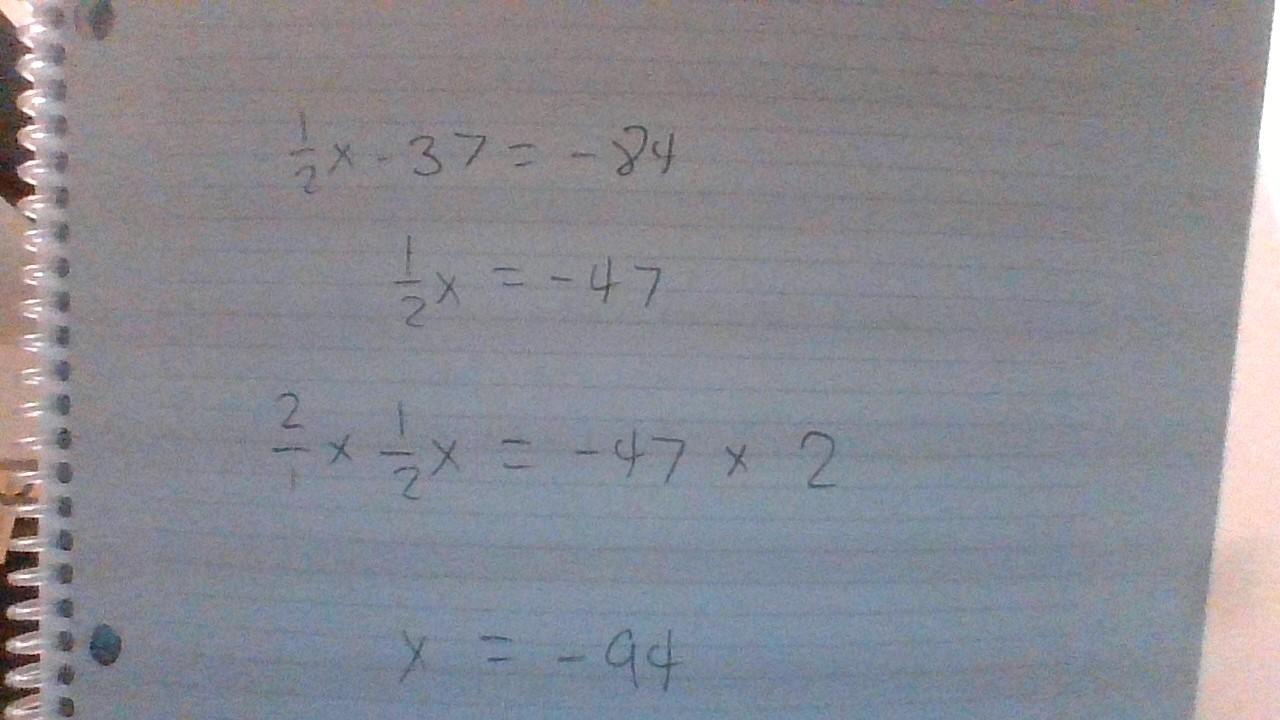 1/2 x - 37 = - 84
1/2 x = - 47
2/1 x 1/2 x = - 47 x 2
x = - 94